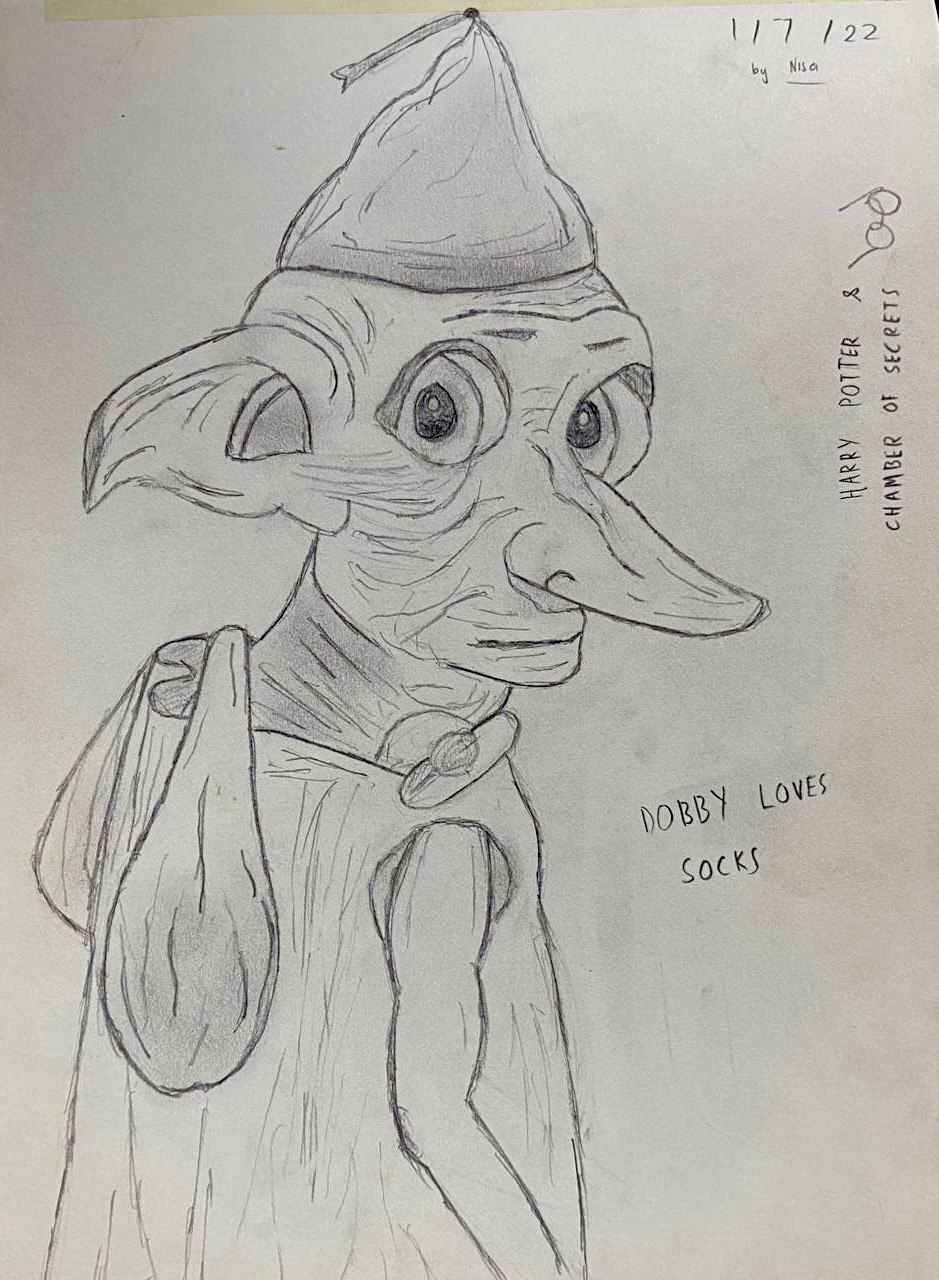 1/7/22
by Nisa
HARRY POTTER &
CHAMBER OF SECRETS
DOBBY LOVES
SOCKS